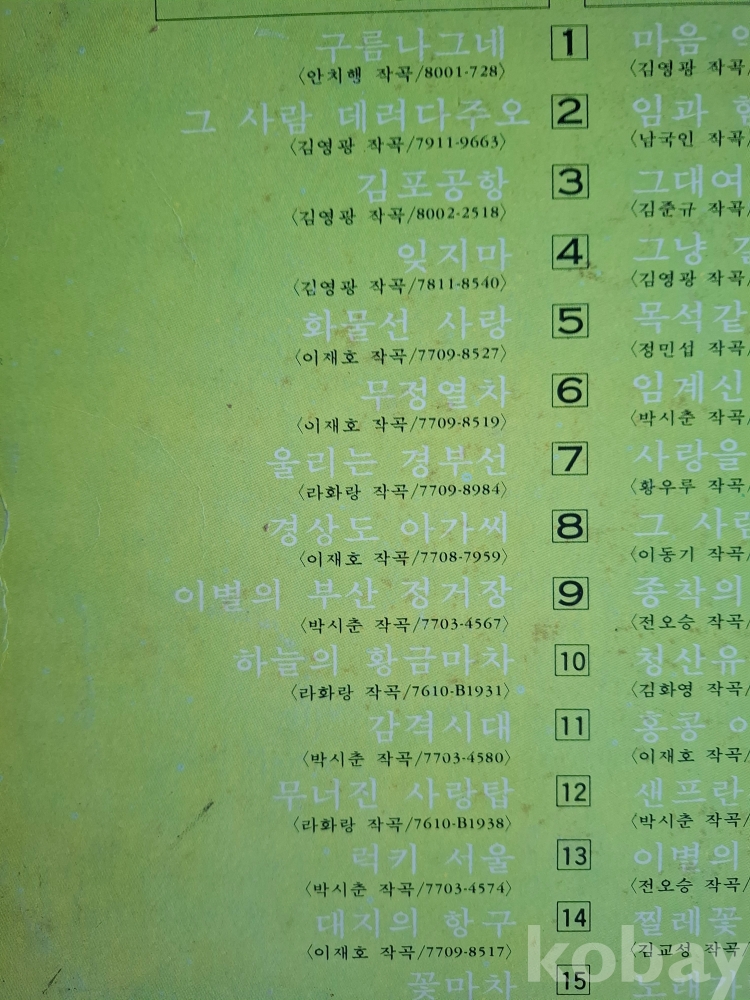 구름나그네 1 마음
〈안치행 작곡/8001-728〉 〈김영광 작곡/
그 사람 데려다주오 2 임과 함
〈김영광 작곡/7911-9663〉 〈남국인 작곡/
김포공항 3 그대여
〈김영광 작곡/8002-2518〉 〈김준규 작곡/
잊지마 4 그냥
〈김영광 작곡/7811-8540〉 〈김영광 작곡/
화물선 사랑 5 목석같
〈이재호 작곡/7709-8527〉 〈정민섭 작곡/
무정열차 6 임계신
〈이재호 작곡/7709-8519〉 〈박시춘 작곡/
울리는 경부선 7 사랑을
〈라화랑 작곡/7709-8984〉 〈황우루 작곡/
경상도 아가씨 8 그 사람
〈이재호 작곡/7708-7959〉 〈이동기 작곡/
이별의 부산 정거장 9 종착의
〈박시춘 작곡/7703-4567〉 〈전오승 작곡/
하늘의 황금마차 10 청산유
〈라화랑 작곡/7610-B1931〉 〈김화영 작곡/
감격시대 11 홍콩 아
〈박시춘 작곡/7703-4580〉 〈이재호 작곡/
무너진 사랑탑 12 샌프란
〈라화랑 작곡/7610-B1938〉 〈박시춘 작곡/
럭키 서울 13 이별의
〈박시춘 작곡/7703-4574〉 〈전오승 작곡/
대지의 항구 14 찔레꽃
〈이재호 작곡/7709-8517〉 〈김교성 작곡/
꽃마차 15
kobay